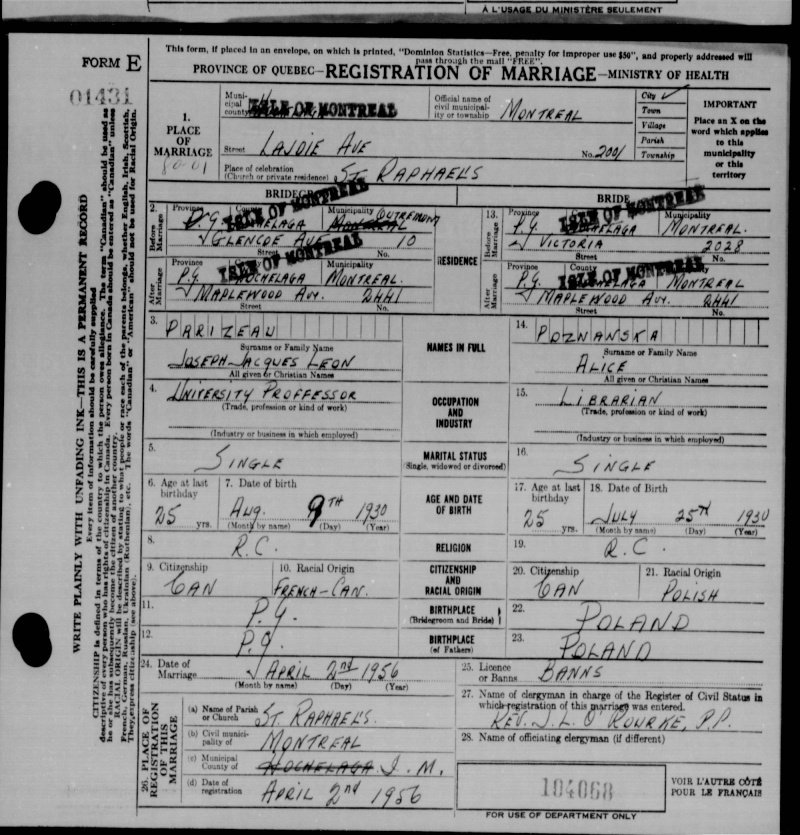 À L'USAGE DU MINISTÈRE SEULEMENT
This form, if placed in an envelope, on which is printed, "Dominion Statistics—Free, penalty for improper use $50", and properly addressed will
pass through the mail "FREE".
FORM E
PROVINCE OF QUEBEC—REGISTRATION OF MARRIAGE—MINISTRY OF HEALTH
01431
WRITE PLAINLY WITH UNFADING INK—THIS IS A PERMANENT RECORD
Every item of information should be carefully supplied
CITIZENSHIP is defined in terms of the country to which the person owes allegiance. The term "Canadian" should be used as
descriptive of every person who has rights of citizenship in Canada. Every person born in Canada should be entered as "Canadian" unless
he or she has subsequently become the citizen of another country.
RACIAL ORIGIN will be described by stating to what people or race each of the parents belongs, whether English, Irish, Scottish,
French, German, Russian, Ukrainian (Ruthenian), etc. The words "Canadian" or "American" should not be used for Racial Origin.
They express citizenship (see above).
1.
PLACE
OF
MARRIAGE
Muni-
cipal
county
ISLE OF MONTREAL
Official name of
civil municipal-
ity or township
MONTREAL
City ✓
Town
Village
Parish
Township
IMPORTANT
Place an X on the
word which applies
to this
municipality
or this
territory
Street LAJOIE AVE No. 2001
Place of celebration
(Church or private residence) ST. RAPHAEL'S
BRIDEGROOM
BRIDE
2. Before Marriage
Province P.Q. County HOCHELAGA ISLE OF MONTREAL Municipality MONTREAL OUTREMONT
GLENCOE AVE 10
Street No.
RESIDENCE
13. Before Marriage
Province P.Q. HOCHELAGA ISLE OF MONTREAL Municipality MONTREAL.
VICTORIA 2028
Street No.
After Marriage
Province P.Q. HOCHELAGA ISLE OF MONTREAL Municipality MONTREAL.
MAPLEWOOD AVY. 2441
Street No.
After Marriage
Province P.Q. County HOCHELAGA ISLE OF MONTREAL Municipality MONTREAL
MAPLEWOOD AVY. 2441
Street No.
3. PARIZEAU
Surname or Family Name
JOSEPH-JACQUES LEON
All given or Christian Names
NAMES IN FULL
14. POZNANSKA
Surname or Family Name
ALICE
All given or Christian Names
4. UNIVERSITY PROFFESSOR
(Trade, profession or kind of work)
(Industry or business in which employed)
OCCUPATION
AND
INDUSTRY
15. LIBRARIAN
(Trade, profession or kind of work)
(Industry or business in which employed)
5. SINGLE
MARITAL STATUS
(Single, widowed or divorced)
16. SINGLE
6. Age at last
birthday
25 yrs.
7. Date of birth
AUG. 9TH 1930
(Month by name) (Day) (Year)
AGE AND DATE
OF BIRTH
17. Age at last
birthday
25 yrs.
18. Date of Birth
JULY 25TH 1930
(Month by name) (Day) (Year)
8. R.C.
RELIGION
19. R.C.
9. Citizenship
CAN
10. Racial Origin
FRENCH-CAN.
CITIZENSHIP
AND
RACIAL ORIGIN
20. Citizenship
CAN
21. Racial Origin
POLISH
11. P.Q.
BIRTHPLACE
(Bridegroom and Bride)
22. POLAND
12. P.Q.
BIRTHPLACE
(of Fathers)
23. POLAND
24. Date of
Marriage
APRIL 2nd 1956
(Month by name) (Day) (Year)
25. Licence
or Banns
BANNS
26. PLACE OF
REGISTRATION
OF THIS
MARRIAGE
(a) Name of Parish
or Church
ST RAPHAEL'S.
(b) Civil munici-
pality of
MONTREAL
(c) Municipal
County of
HOCHELAGA I. M.
(d) Date of
registration
APRIL 2nd 1956
27. Name of clergyman in charge of the Register of Civil Status in
which registration of this marriage was entered.
REV. J. L. O'ROURKE, P.P.
28. Name of officiating clergyman (if different)
104068
FOR USE OF DEPARTMENT ONLY
VOIR L'AUTRE CÔTÉ
POUR LE FRANÇAIS